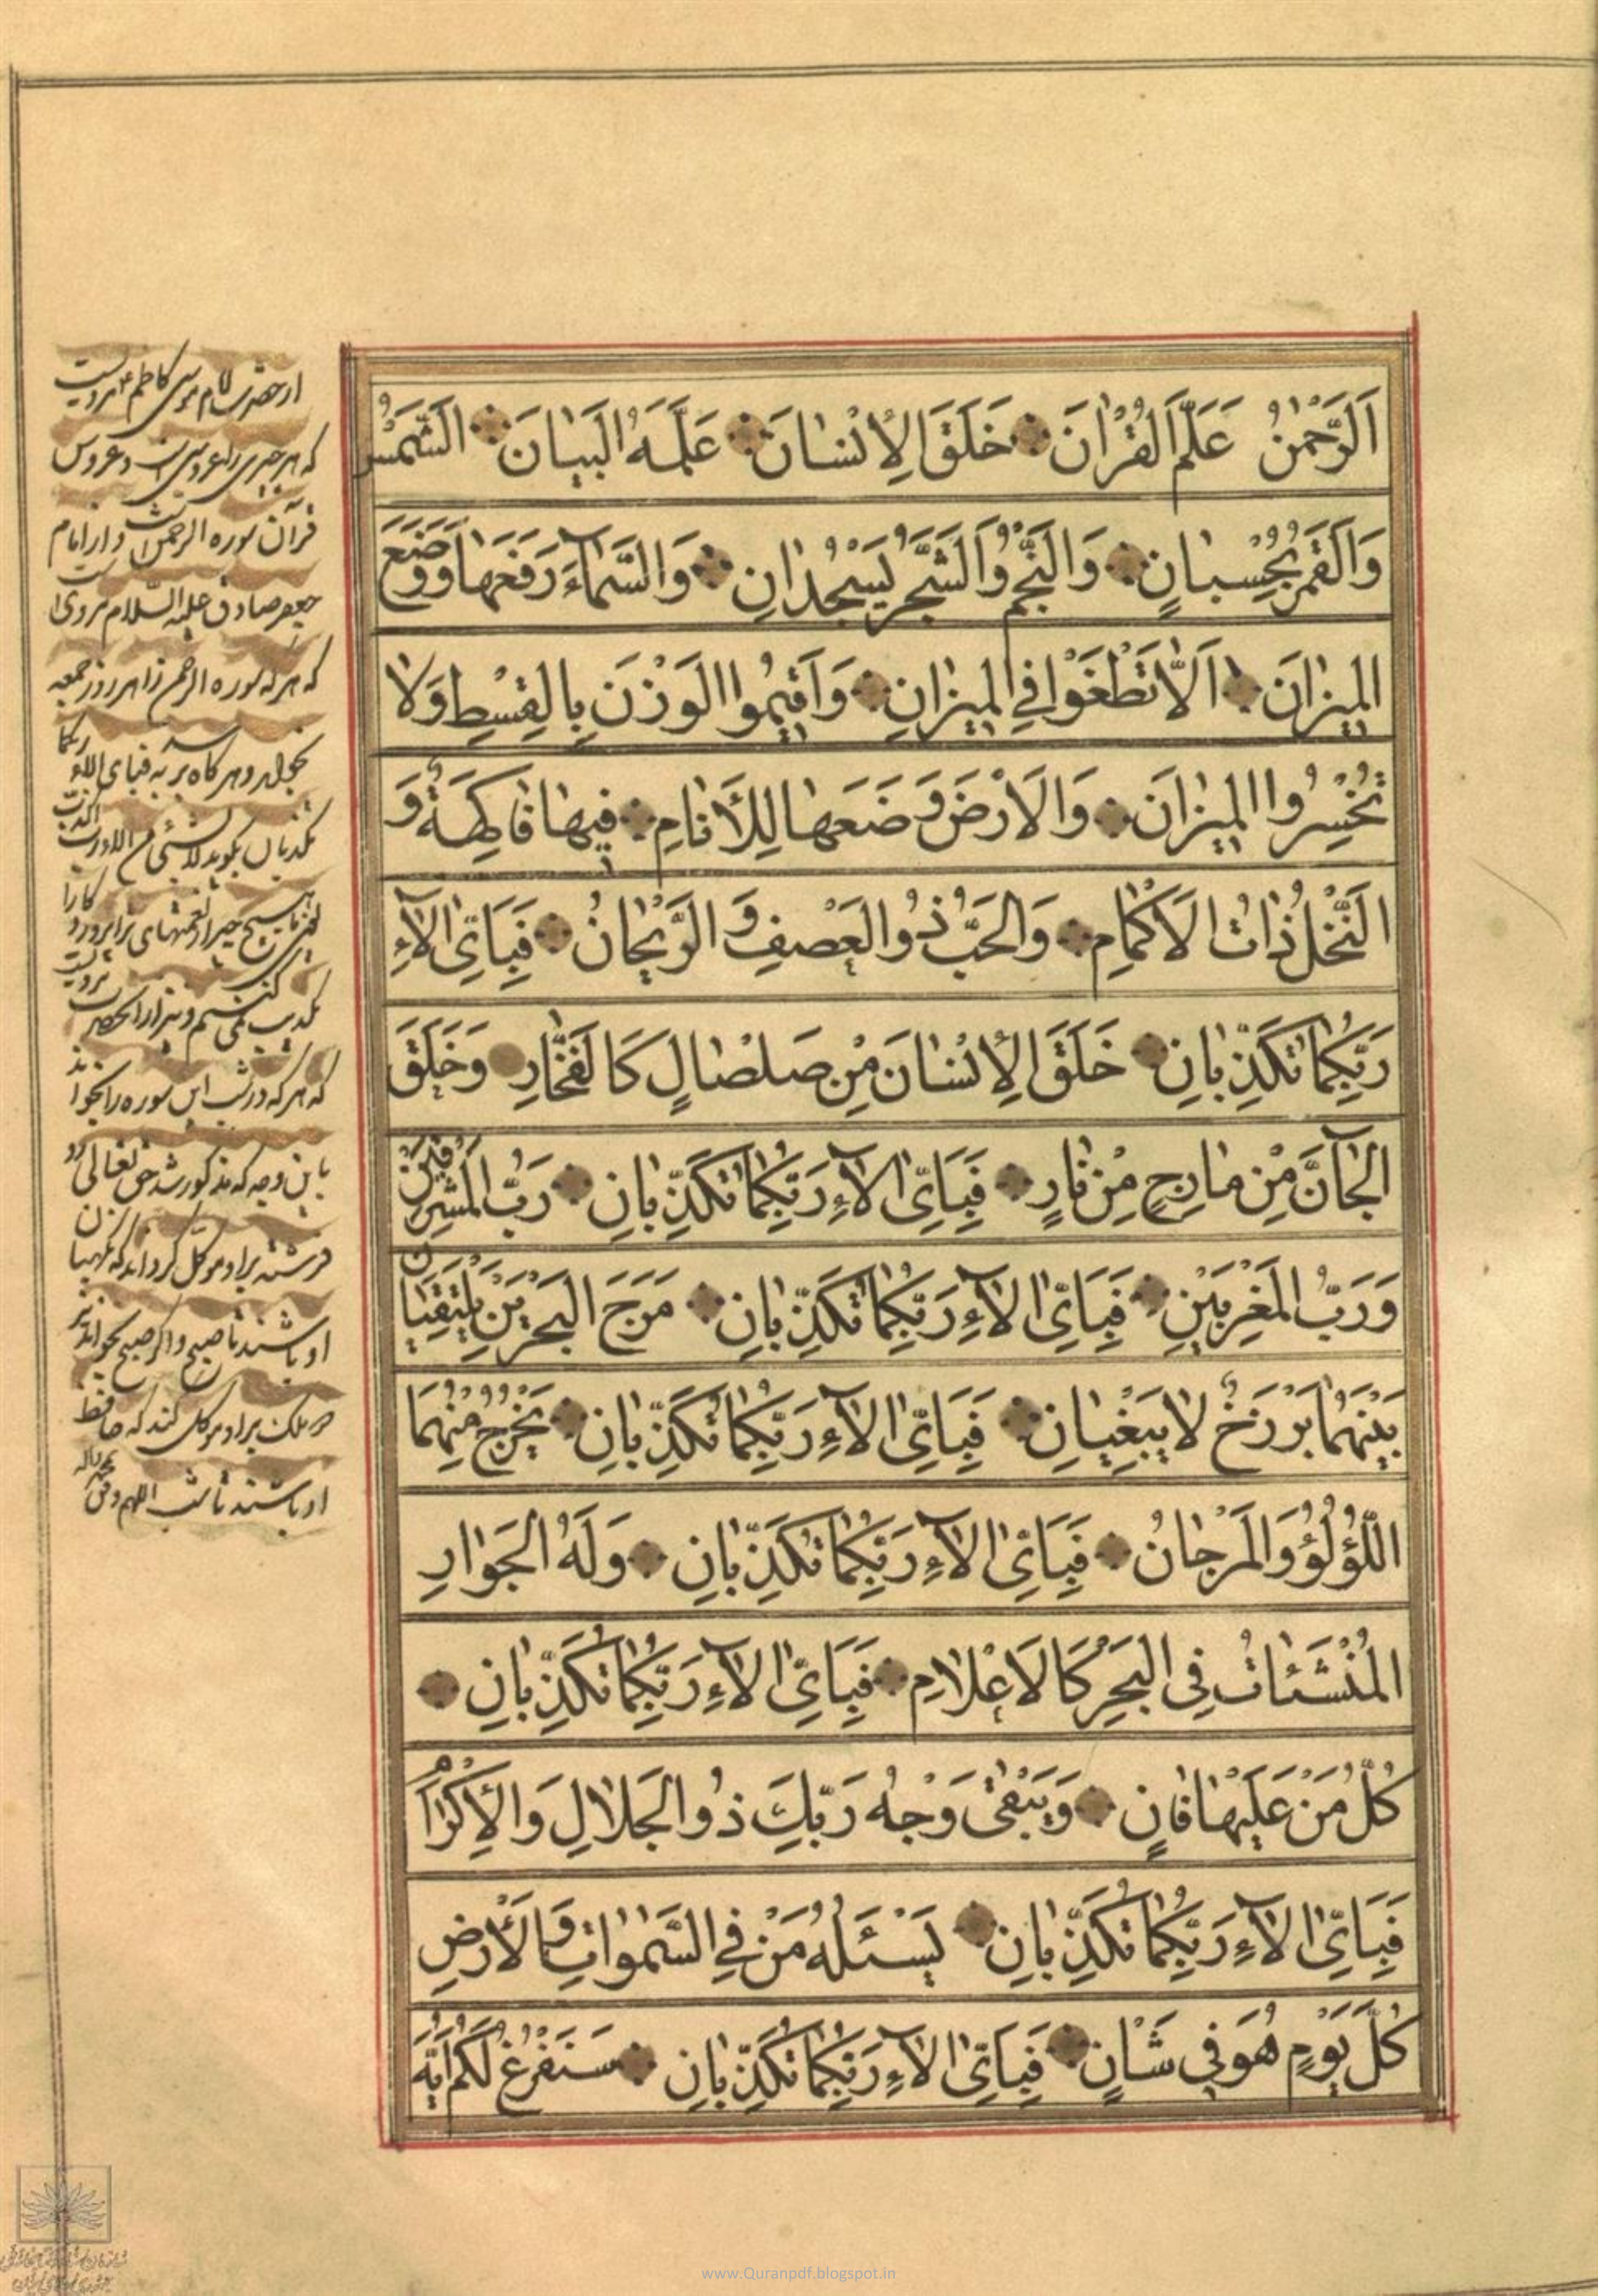 اَلرَّحْمٰنُ عَلَّمَ الْقُرْاٰنَ خَلَقَ الْاِنْسٰانَ عَلَّمَهُ الْبَيٰانَ الشَّمْسُ
وَالْقَمَرُ بِحُسْبٰانٍ وَالنَّجْمُ وَالشَّجَرُ يَسْجُدٰانِ وَالسَّمٰآءَ رَفَعَهٰا وَوَضَعَ
الْمِيزٰانَ اَلّٰا تَطْغَوْا فِي الْمِيزٰانِ وَاَقِيمُوا الْوَزْنَ بِالْقِسْطِ وَلٰا
تُخْسِرُوا الْمِيزٰانَ وَالْاَرْضَ وَضَعَهٰا لِلْاَنٰامِ فِيهٰا فٰاكِهَةٌ وَ
النَّخْلُ ذٰاتُ الْاَكْمٰامِ وَالْحَبُّ ذُو الْعَصْفِ وَ الرَّيْحٰانُ فَبِاَيِّ اٰلٰآءِ
رَبِّكُمٰا تُكَذِّبٰانِ خَلَقَ الْاِنْسٰانَ مِنْ صَلْصٰالٍ كَالْفَخّٰارِ وَخَلَقَ
الْجٰآنَّ مِنْ مٰارِجٍ مِنْ نٰارٍ فَبِاَيِّ اٰلٰآءِ رَبِّكُمٰا تُكَذِّبٰانِ رَبُّ الْمَشْرِقَيْنِ
وَرَبُّ الْمَغْرِبَيْنِ فَبِاَيِّ اٰلٰآءِ رَبِّكُمٰا تُكَذِّبٰانِ مَرَجَ الْبَحْرَيْنِ يَلْتَقِيٰانِ
بَيْنَهُمٰا بَرْزَخٌ لٰا يَبْغِيٰانِ فَبِاَيِّ اٰلٰآءِ رَبِّكُمٰا تُكَذِّبٰانِ يَخْرُجُ مِنْهُمَا
اللُّؤْلُؤُ وَالْمَرْجٰانُ فَبِاَيِّ اٰلٰآءِ رَبِّكُمٰا تُكَذِّبٰانِ وَلَهُ الْجَوٰارِ
الْمُنْشَئٰاتُ فِي الْبَحْرِ كَالْاَعْلٰامِ فَبِاَيِّ اٰلٰآءِ رَبِّكُمٰا تُكَذِّبٰانِ
كُلُّ مَنْ عَلَيْهٰا فٰانٍ وَيَبْقٰى وَجْهُ رَبِّكَ ذُو الْجَلٰالِ وَالْاِكْرٰامِ
فَبِاَيِّ اٰلٰآءِ رَبِّكُمٰا تُكَذِّبٰانِ يَسْئَلُهُ مَنْ فِي السَّمٰوٰاتِ وَالْاَرْضِ
كُلَّ يَوْمٍ هُوَ فِي شَاْنٍ فَبِاَيِّ اٰلٰآءِ رَبِّكُمٰا تُكَذِّبٰانِ سَنَفْرُغُ لَكُمْ اَيُّهَ
از حضرت امام موسی کاظم ع مرویست
که هر چیزی را عروسی است و عروس
قرآن سوره الرحمن است و از امام
جعفر صادق علیه السلام مرویست
که هر که سوره الرحمن را هر روز جمعه
بخواند و هر گاه برسد به فبای الاء ربکما
تکذبان بگوید لا بشیء من الائک رب اکذب
یعنی هیچ چیز از نعمتهای ترا پروردگارا
تکذیب نمی کنیم و نیز از آنحضرت مرویست
که هر که در شب این سوره را بخواند
باین وجه که مذکور شد حق تعالی دو
فرشته براو موکل گرداند که نگهبان
او باشند تا صبح و اگر صبح بخواند نیز
دو ملک براو موکل کند که حافظ
او باشند تا شب اللهم وفق
www.Quranpdf.blogspot.in